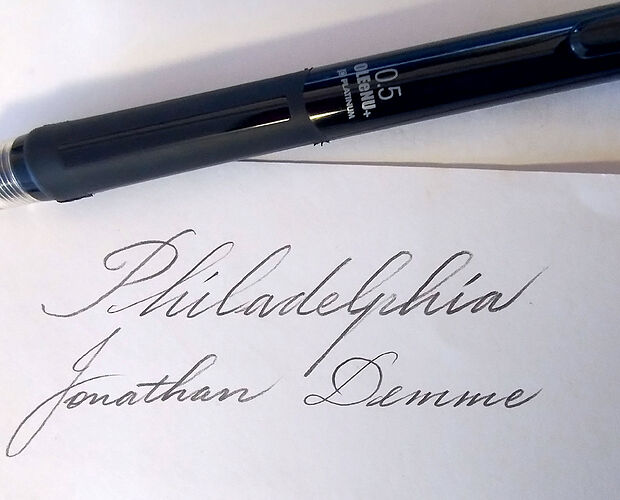 0.5
OLEeNU+
PLATINUM
Philadelphia
Jonathan Demme